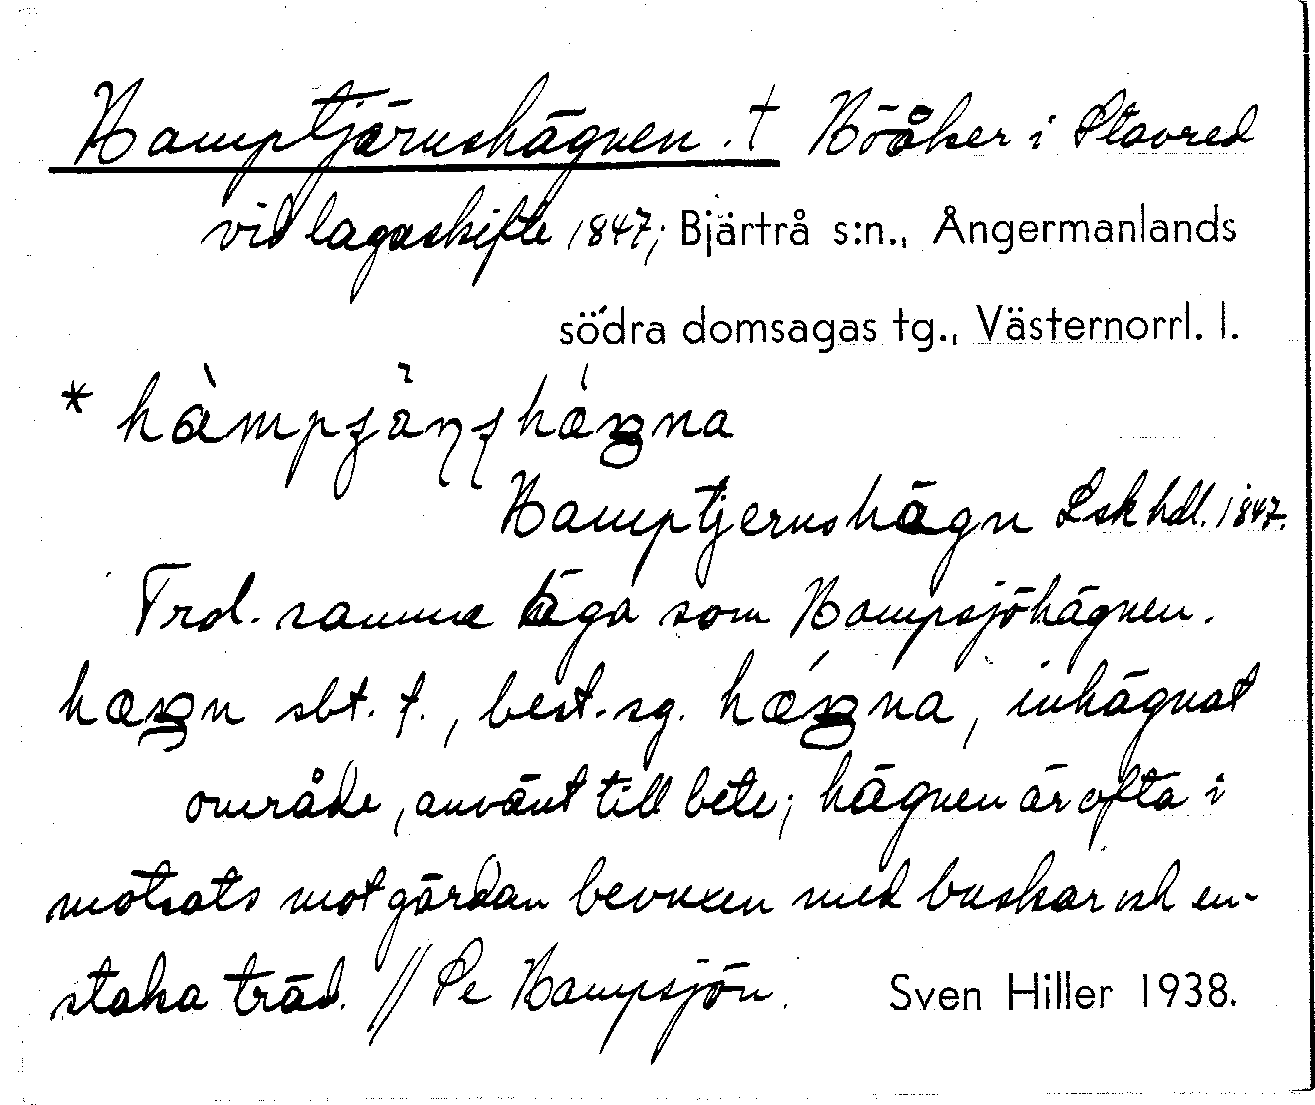 Hamptjärnshägnen. † Höåker i Stavred
vid lagaskifte 1847; Bjärtrå s:n., Ångermanlands
södra domsagas tg., Västernorrl. l.
*
Hamptjernshägn Lsk hdl. 1847.
Trol. samma äga som Hampsjöhägnen.
sbt. f., best. sg. inhägnat
område, använt till bete; hägnen är ofta i
motsats mot gärdan bevuxen med buskar och en-
staka träd. // Se Hampsjön. Sven Hiller 1938.